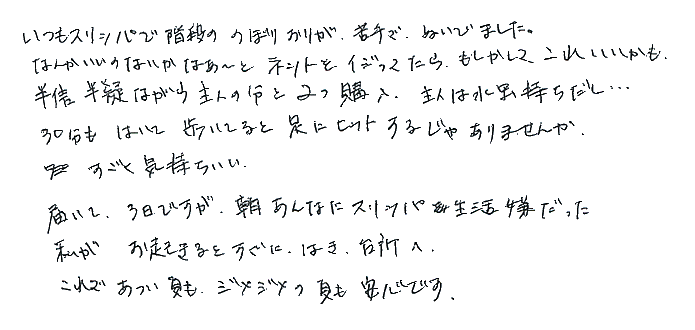 いつもスリッパで階段の のぼりおりが、苦手で、ぬいでました。
なんかいいのないかなあ〜と ネットを イジってたら、もしかして、これいいかも、
半信半疑ながら 主人の分と 2つ購入、主人は水虫持ちだし…
30分も はいて 歩いてると 足にヒットするじゃ ありませんか、
すごく気持ちいい、
届いて、3日ですが、朝あんなにスリッパ生活嫌だった
私が お起きるとすぐに、はき、台所へ、
これで あつい夏も、ジメジメの夏も 安心です、